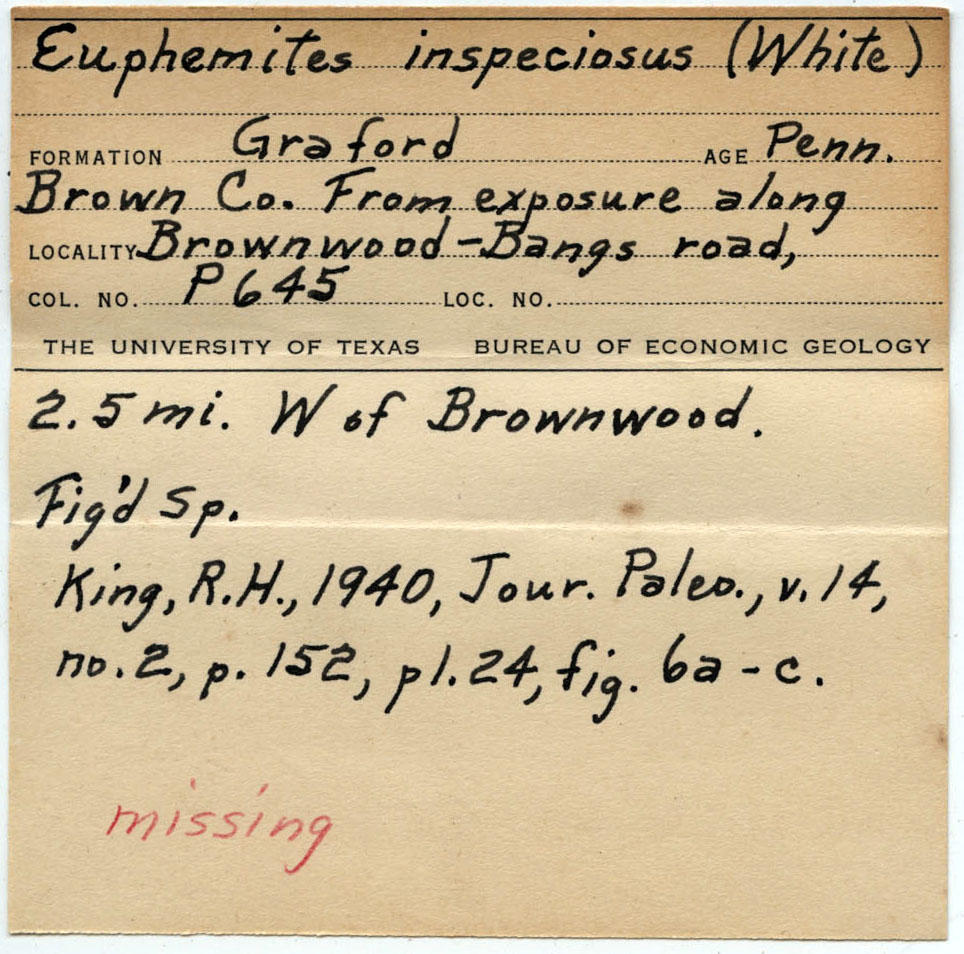 Euphemites inspeciosus (White)
FORMATION Graford AGE Penn.
Brown Co. From exposure along
LOCALITY Brownwood-Bangs road,
COL. NO. P645 LOC. NO.
THE UNIVERSITY OF TEXAS BUREAU OF ECONOMIC GEOLOGY
2.5 mi. W of Brownwood.
Fig'd Sp.
King, R.H., 1940, Jour. Paleo., v. 14,
no. 2, p. 152, pl. 24, fig. 6a-c.
missing